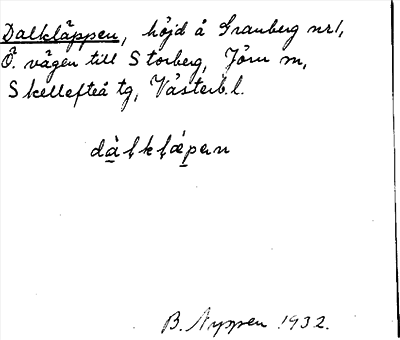 Dalkläppen, höjd å Granberg nr 1,
Ö. vägen till Storberg, Jörn sn,
Skellefteå tg, Västerb. l.
dàłkłǽpen
B. Nyppen 1932.